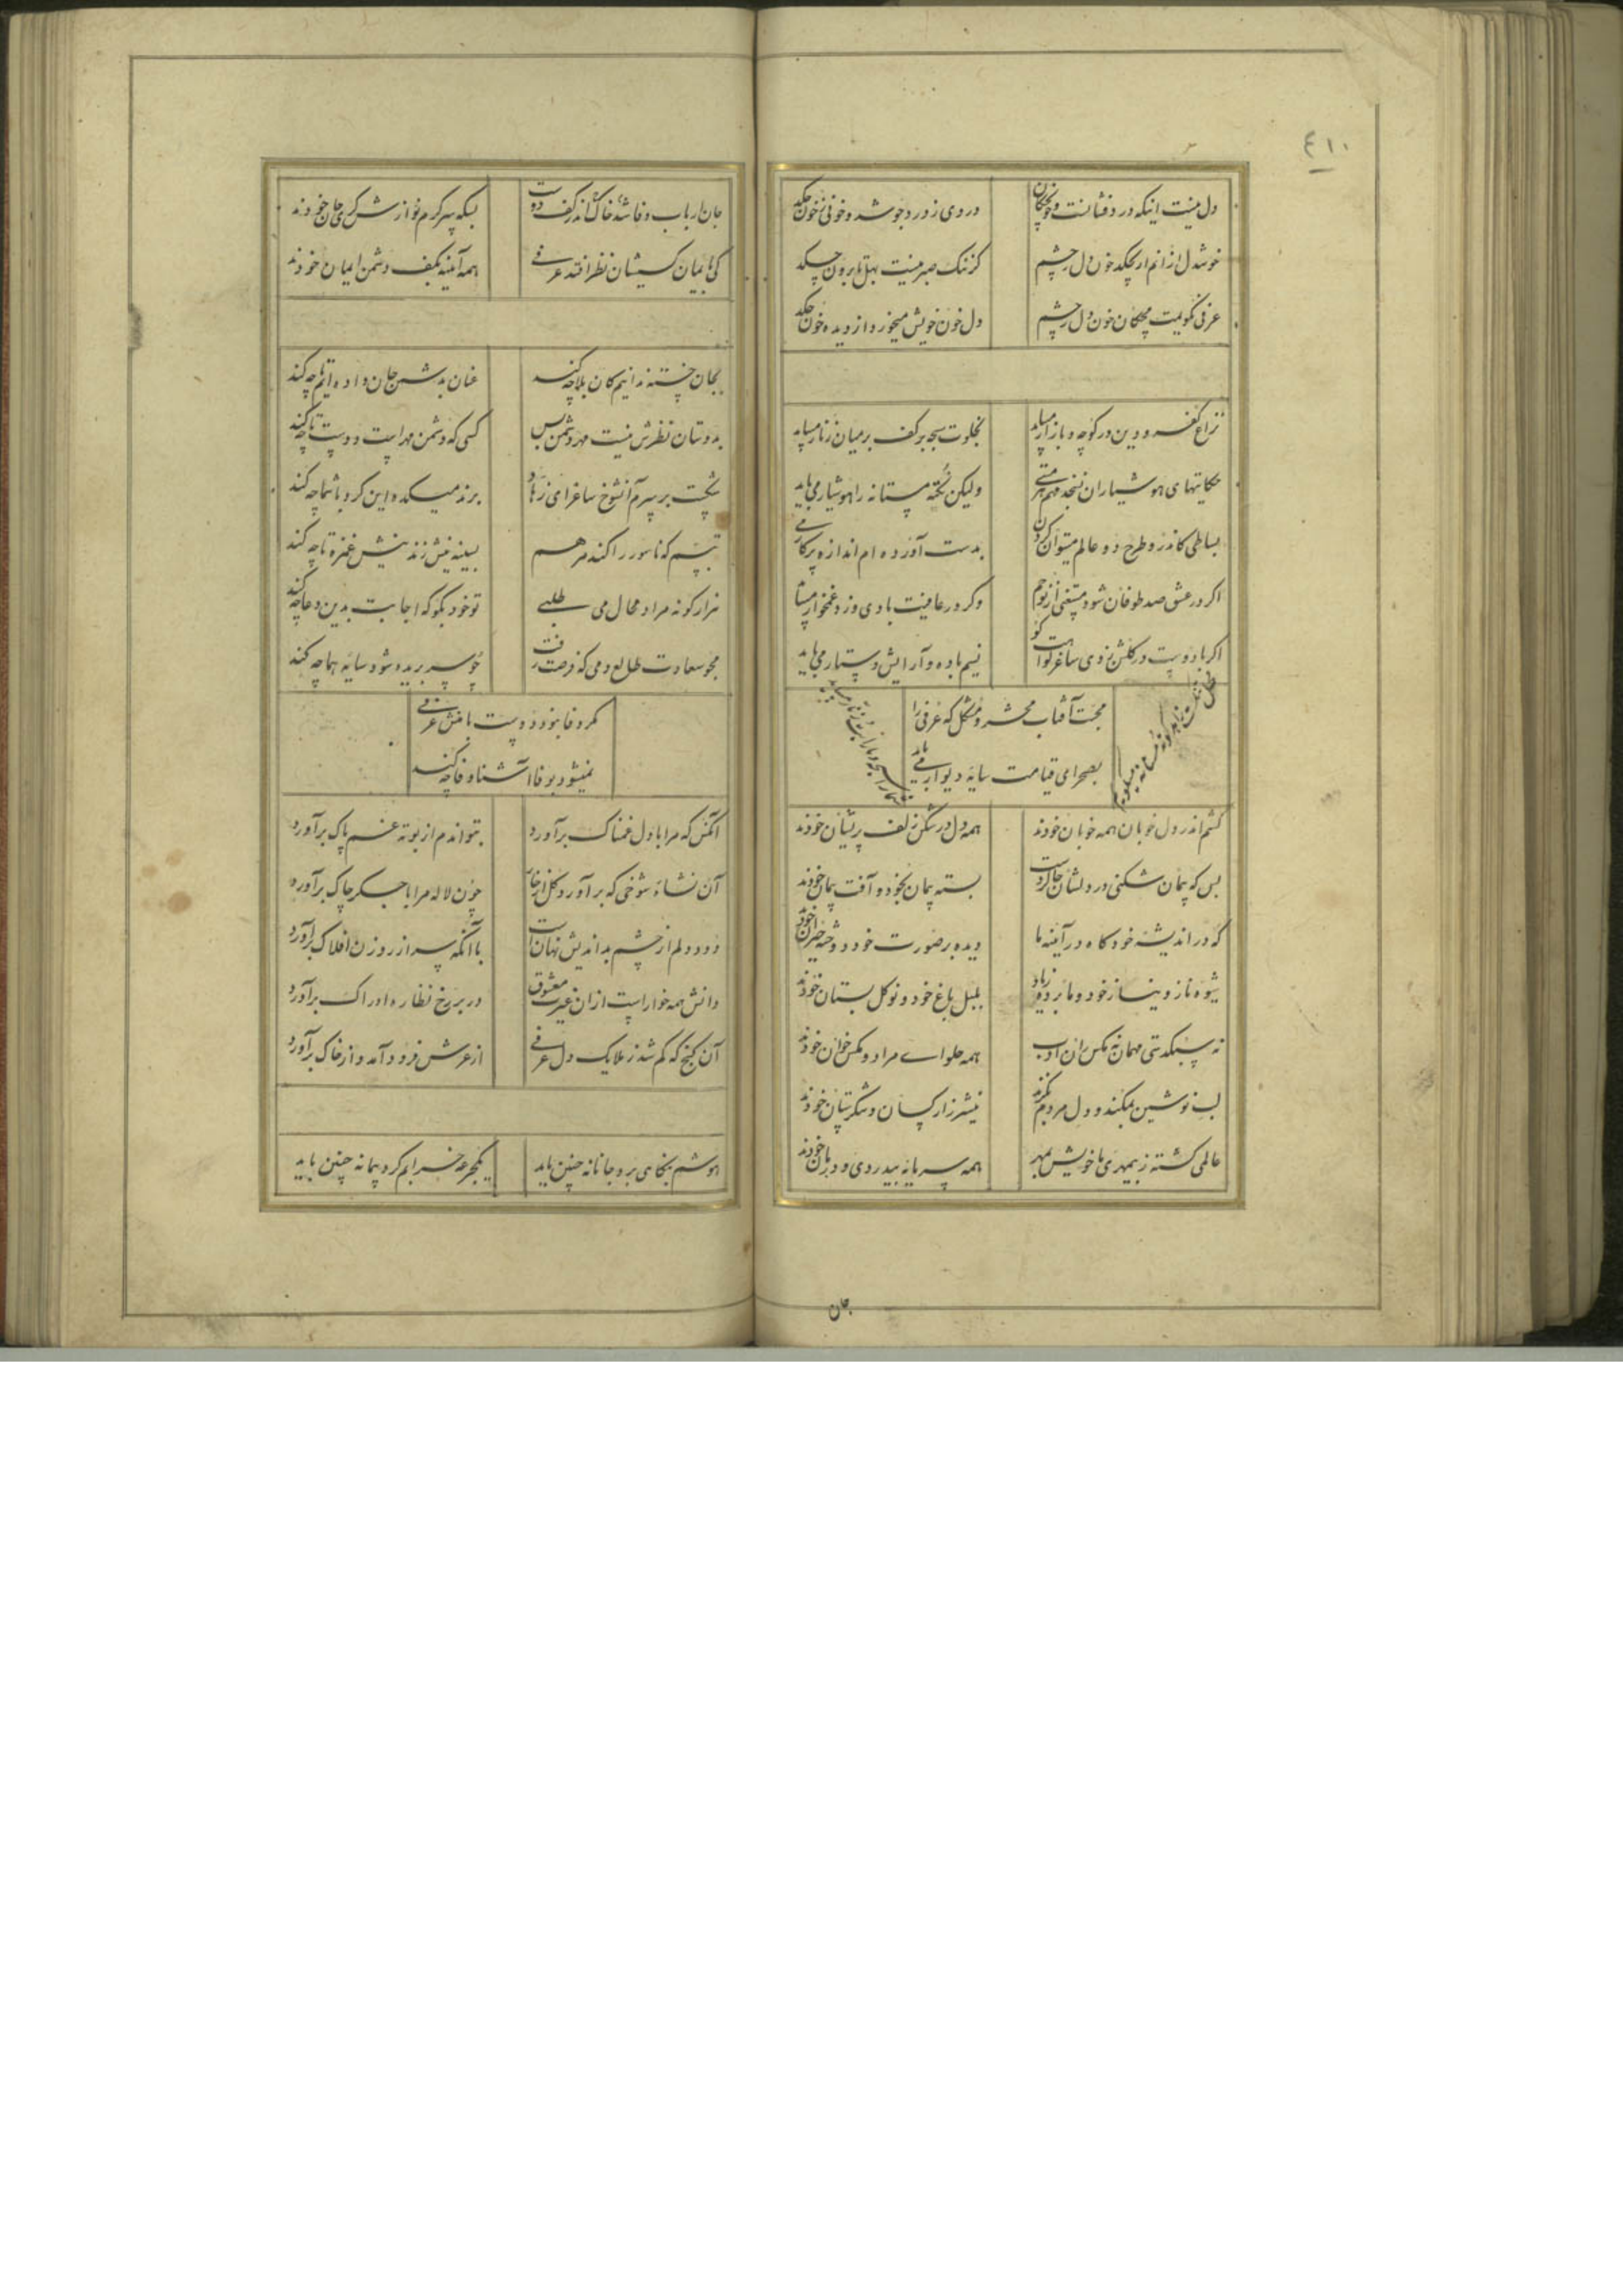 ٤١٠
دل نیست اینکه در دفشانست و خونچکان
در وی ز درد جوشد و خونی ز خون چکد
خوشدل ازانم ار بچکد خون دل ز چشم
کز ننگ صبر نیست بهل تا برون چکد
عرفی نکویمت مچکان خون دل ز چشم
دل خون خویش میخورد از دیده خون چکد
نزاع کفر و دین در کوچه و بازار میباید
بخلوت سبحه بر کف بر میان زنار میباید
حکایتهای هوشیاران نسنجد فهم هر مستی
ولیکن نکته مستانه را هوشیار می باید
بساطی کاندرو طرح دو عالم میتوان کردن
بدست آورده ام اندازه پرکار می
اگر در عشق صد طوفان شود مستغنی از نوحم
وکر در عافیت بادی وزد غمخوار میباید
اگر با دوست در گلشن زدی ساغر
نسیم باده و آرایش دستار می باید
محبت آفتاب محشر و مشکل که عرفی را
بصحرای قیامت سایه دیوار می باید
کشم اندر دل خوبان همه خوبان خودند
همه دل در شکن زلف پریشان خودند
بس که پیمان شکنی در دلشان جا کردست
بسته پیمان بخود و آفت پیمان خودند
که در اندیشه خود کاه در آئینه ما
دیده بر صورت خود دوخته حیران خودند
شیوه ناز و نیاز خود و ما برده ز یاد
بلبل باغ خود و نوکل بستان خودند
نه سبکدستی مهمان نه مکس ران ادب
همه حلوای مراد و مکس خوان خودند
لب نوشین بمکند و دل مردم بکزند
نیشتر زار کسان و شکرستان خودند
عالمی کشته ز بیمهری با خویش بمهر
همه سرمایه بیدردی و درمان خودند
جان
جان ارباب وفا شد خاک اندر کف دوست
بسکه سرکرم نوازش کری جان خودند
کی بایمان کسیشان نظر افتد عرفی
همه آئینه بکف دشمن ایمان خودند
بجان خسته ندانیم کان بلا چه کند
عنان بدشمن جان داده ایم تا چه کند
بدوستان نظرش نیست مهر دشمن بس
کسی که دشمن مهر است و دوست تا چه کند
شکست بر سرم آنشوخ ساغر ای زهاد
برند میکده این کرد با شما چه کند
تبسم که ناسور را کند مرهم
بسینه نیش زند نیش غمزه تا چه کند
هزار کونه مراد محال می طلبی
تو خود بگو که اجابت بدین دعا چه کند
مجو سعادت طالع دمی که فرصت رفت
چو سر بریده شود سایه هما چه کند
کمر وفا بنود دوست با منش عرفی
نمیشود بوفا آشنا وفا چه کند
آنکس که مرا با دل غمناک برآورد
بتواندم از بوته غم پاک برآورد
آن نشاء شوخی که برآورد کل از خاک
چون لاله مرا با جگر چاک برآورد
دود دلم از چشم بداندیش نهان است
با آنکه سر از روزن افلاک برآورد
دانش همه خوار است ازان غیرت معشوق
در برزخ نظاره ادراک برآورد
آن کنج که کم شد ز ملایک دل عرفی
از عرش فرود آمد و از خاک برآورد
هوشم بنگاهی برد جانانه چنین باید
یکجرعه خرابم کرد پیمانه چنین باید